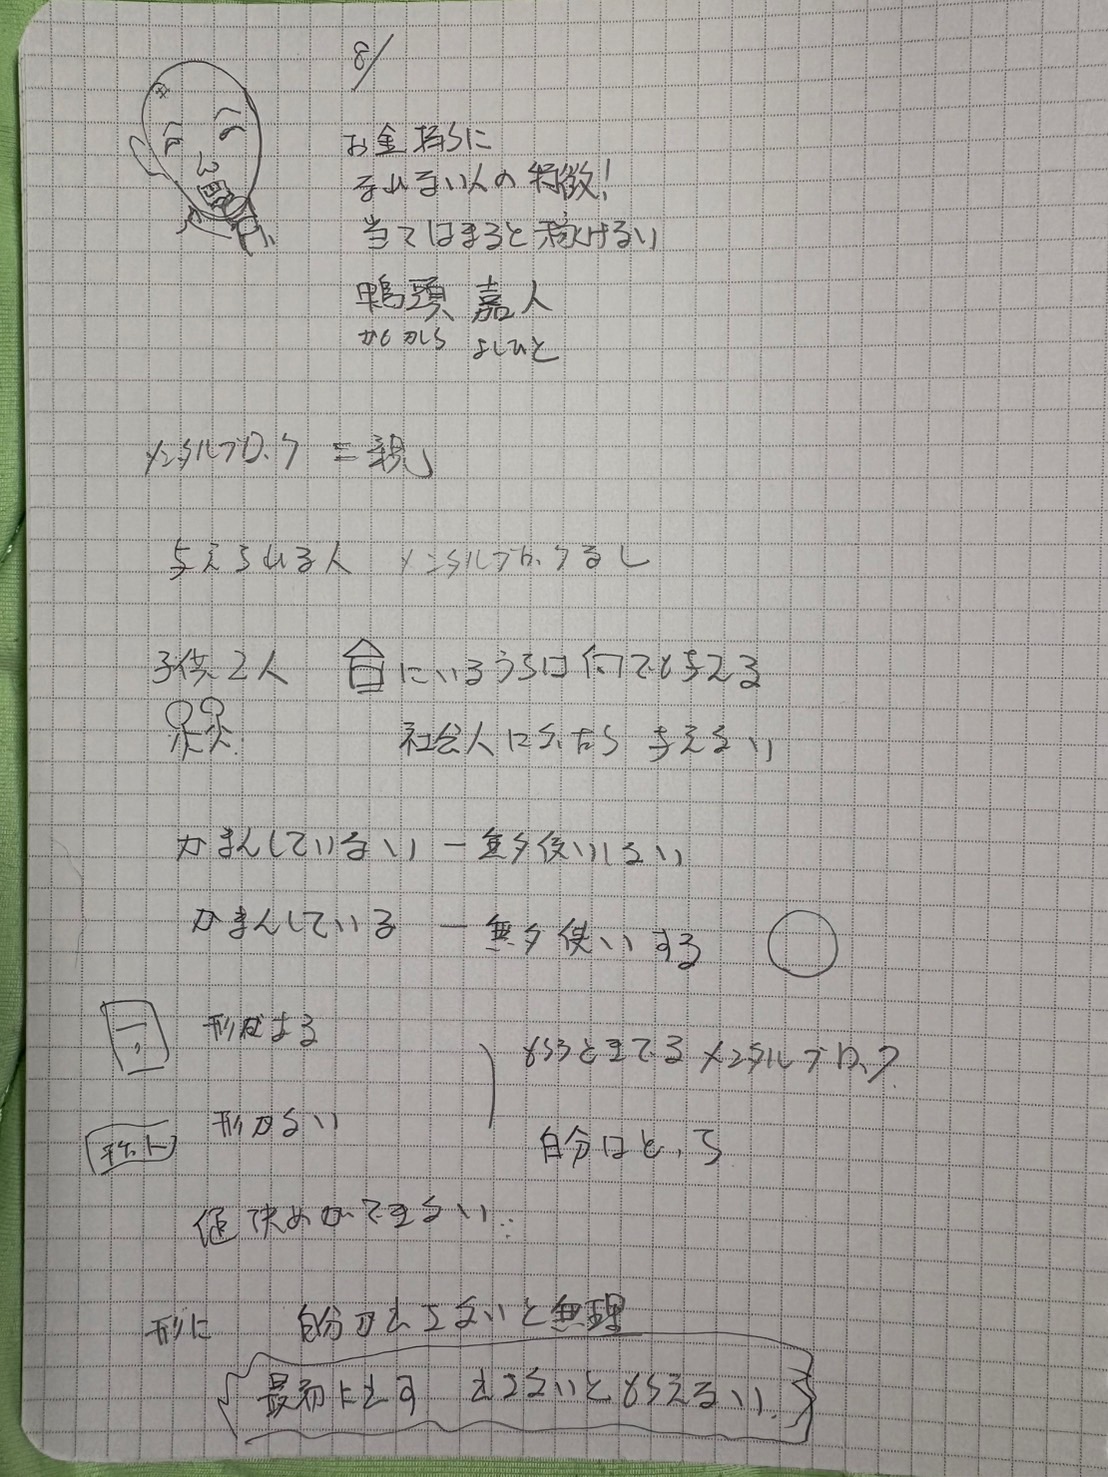 8/
お金持ちに
なれない人の特徴!
当てはまると稼げない
鴨頭 嘉人
かもがしら よしひと
メンタルブロック = 親
与えられる人 メンタルブロックなし
子供2人 にいるうちは何でも与える
社会人になったら 与えない
がまんしていない ー 無ダ使いしない
がまんしている ー 無ダ使いする
形がある
もらうとまでるメンタルブロック
形がない
自分はどっち
値決めができない
形に 自分が出さないと無理
最初に出す 出さないともらえない